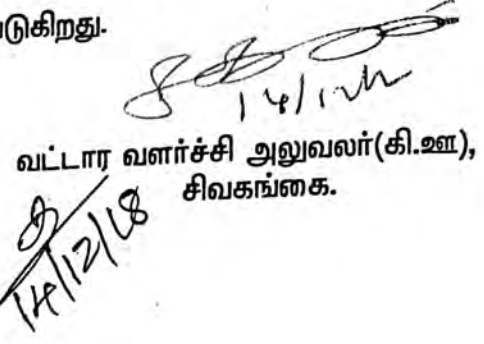 படுகிறது.
14/12/18
வட்டார வளர்ச்சி அலுவலர்(கி.ஊ),
சிவகங்கை.
14/12/18